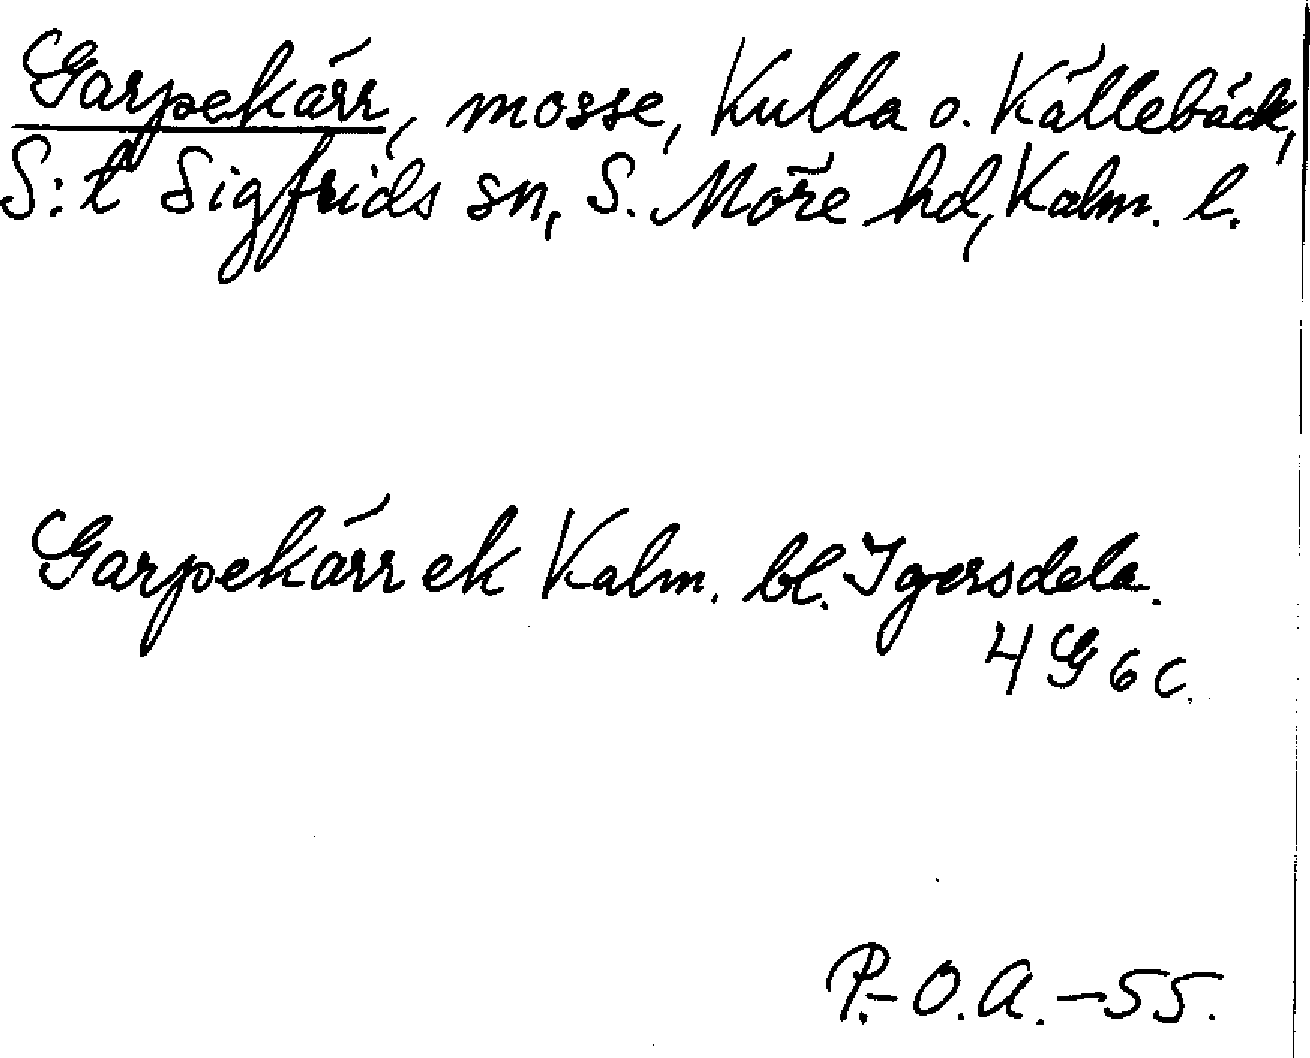 Garpekärr, mosse, Kulla o. Källebäck,
S:t Sigfrids sn, S. Möre hd, Kalm. l.
Garpekärr ek Kalm. bl. Igersdela.
4 G 6 c.
P.-O.A.-55.